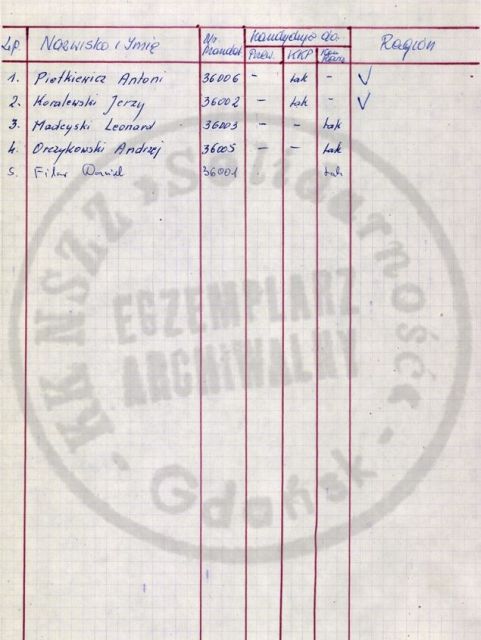 Lp. Nazwisko i Imię Nr. Mandat. Kandyduje do: Region
Przew. KKP Kom. Rew.
1. Pietkiewicz Antoni 36006 - tak - ✓
2. Koralewski Jerzy 36002 - tak - ✓
3. Madeyski Leonard 36003 - - tak
4. Orczykowski Andrzej 36005 - - tak
5. Filar 36001 tak
KK NSZZ "Solidarność" - Gdańsk -
EGZEMPLARZ
ARCHIWALNY